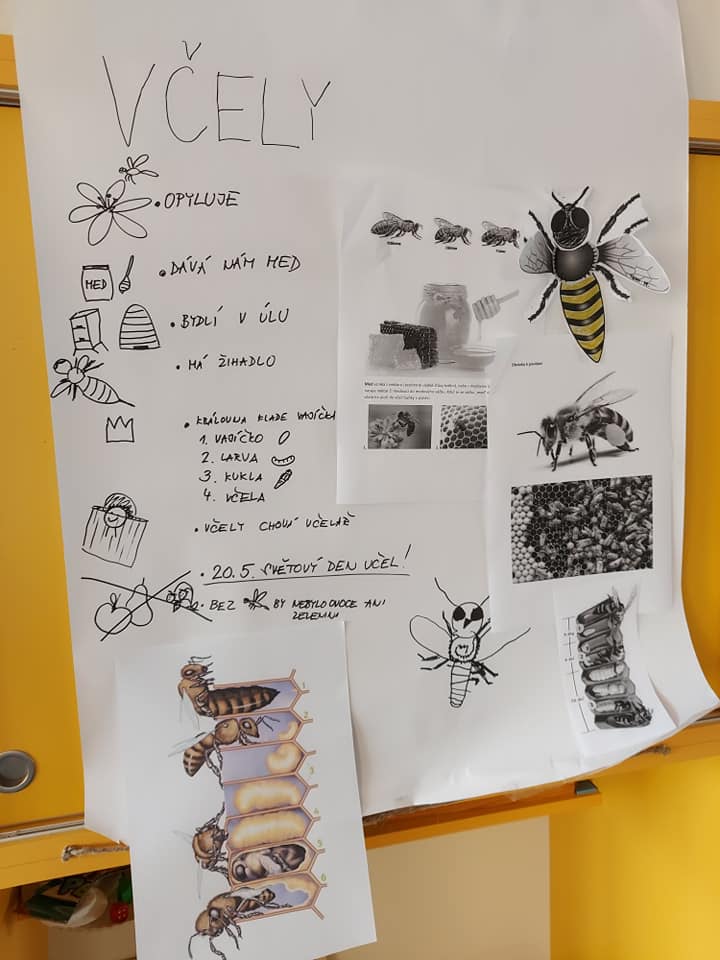 VČELY
OPYLUJE
DÁVÁ NÁM MED
MED
BYDLÍ V ÚLU
MÁ ŽIHADLO
KRÁLOVNA KLADE VAJÍČKA
1. VAJÍČKO
2. LARVA
3. KUKLA
4. VČELA
VČELY CHOVÁ VČELAŘ
20.5. SVĚTOVÝ DEN VČEL!
BEZ BY NEBYLO OVOCE ANI
ZELENINY
1
2
3
4
5
6